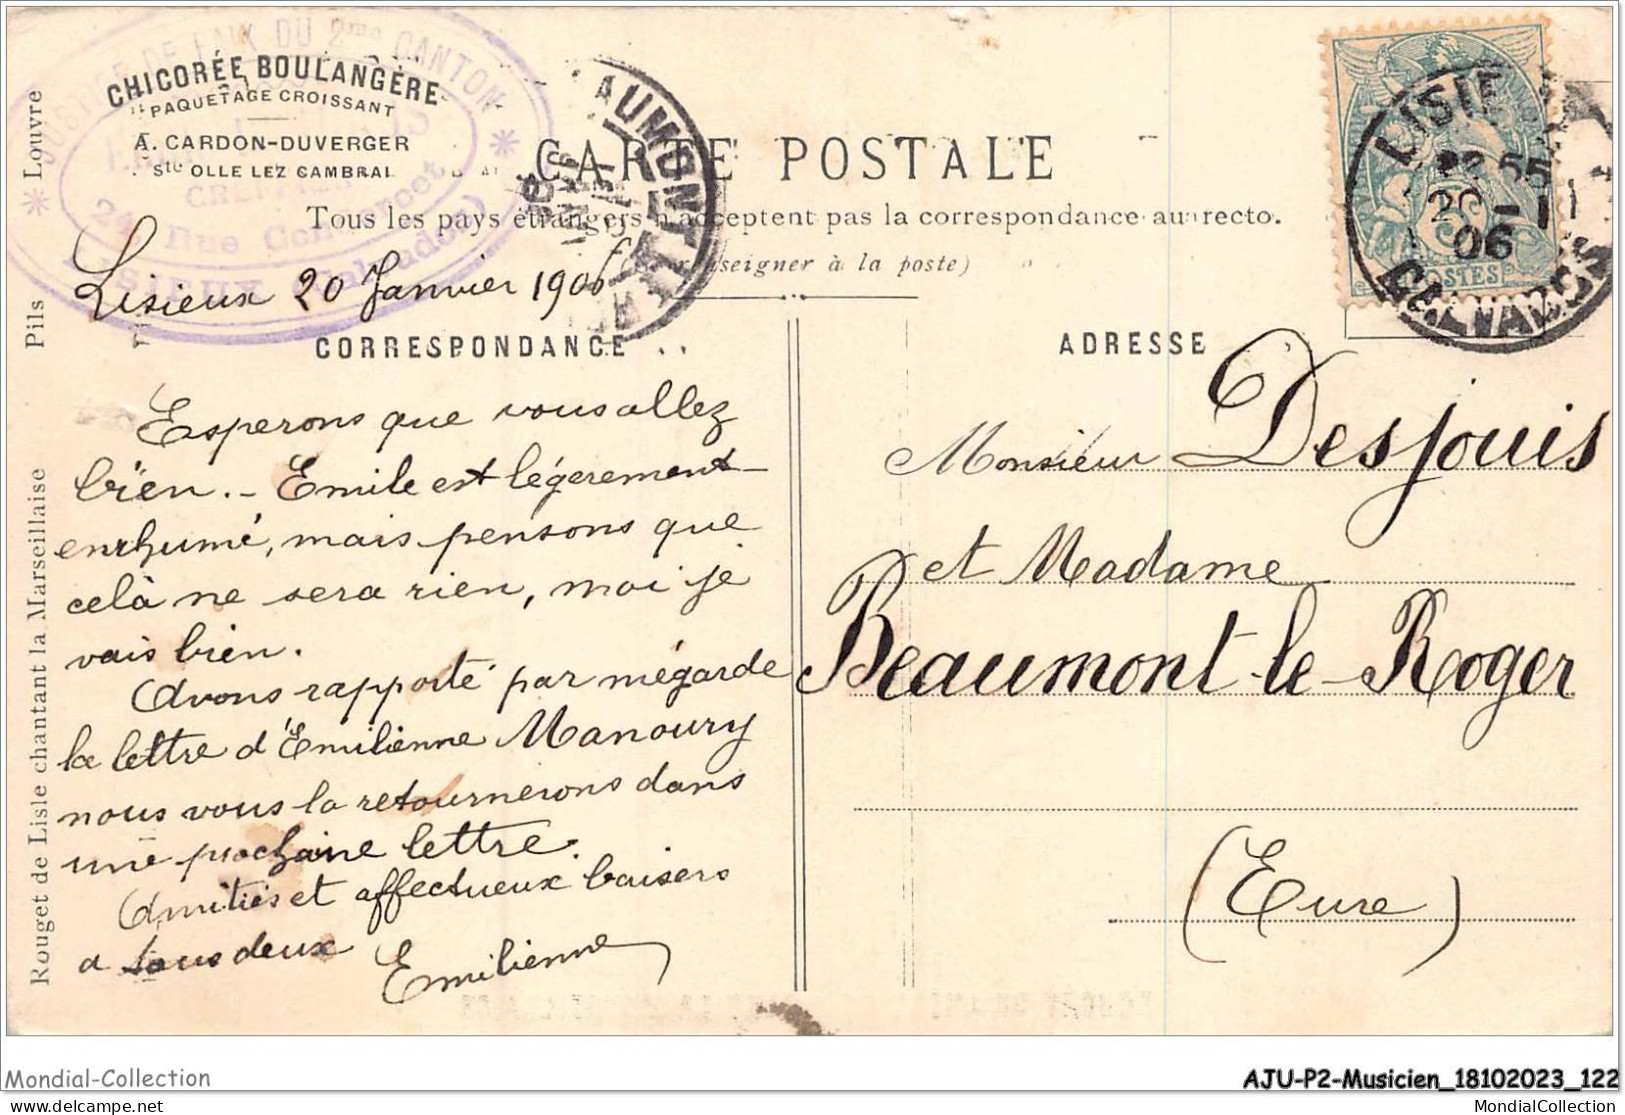 CHICORÉE BOULANGÈRE
PAQUETAGE CROISSANT
A. CARDON-DUVERGER
Ste OLLE LEZ CAMBRAI
JUSTICE DE PAIX DU 2me CANTON
24 Rue
LISIEUX (Calvados)
BEAUMONT-LE
CARTE POSTALE
Tous les pays étrangers n'acceptent pas la correspondance au recto.
(Se renseigner à la poste)
LISIEUX
20 - 1
06
CALVADOS
POSTES
Lisieux 20 Janvier 1906
CORRESPONDANCE
Esperons que vous allez
bien. - Emile est légerement
enrhumé, mais pensons que
celà ne sera rien, moi je
vais bien.
Avons rapporté par mégarde
la lettre d'Emilienne Manoury
nous vous la retournerons dans
une prochaine lettre.
Amitiés et affectueux baisers
a tous deux
Emilienne
ADRESSE
Monsieur Desjouis
et Madame
Beaumont-le-Roger
(Eure)
Rouget de Lisle chantant la Marseillaise Pils * Louvre
Mondial-Collection
AJU-P2-Musicien_18102023_122
MondialCollection